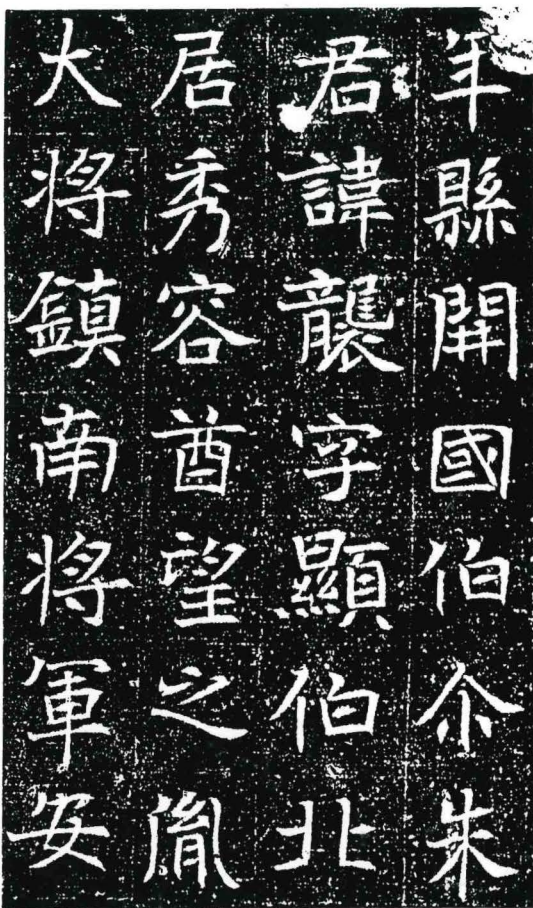 年縣開國伯尒朱
君諱襲字顯伯北
居秀容酋望之胤
大将鎮南将軍安